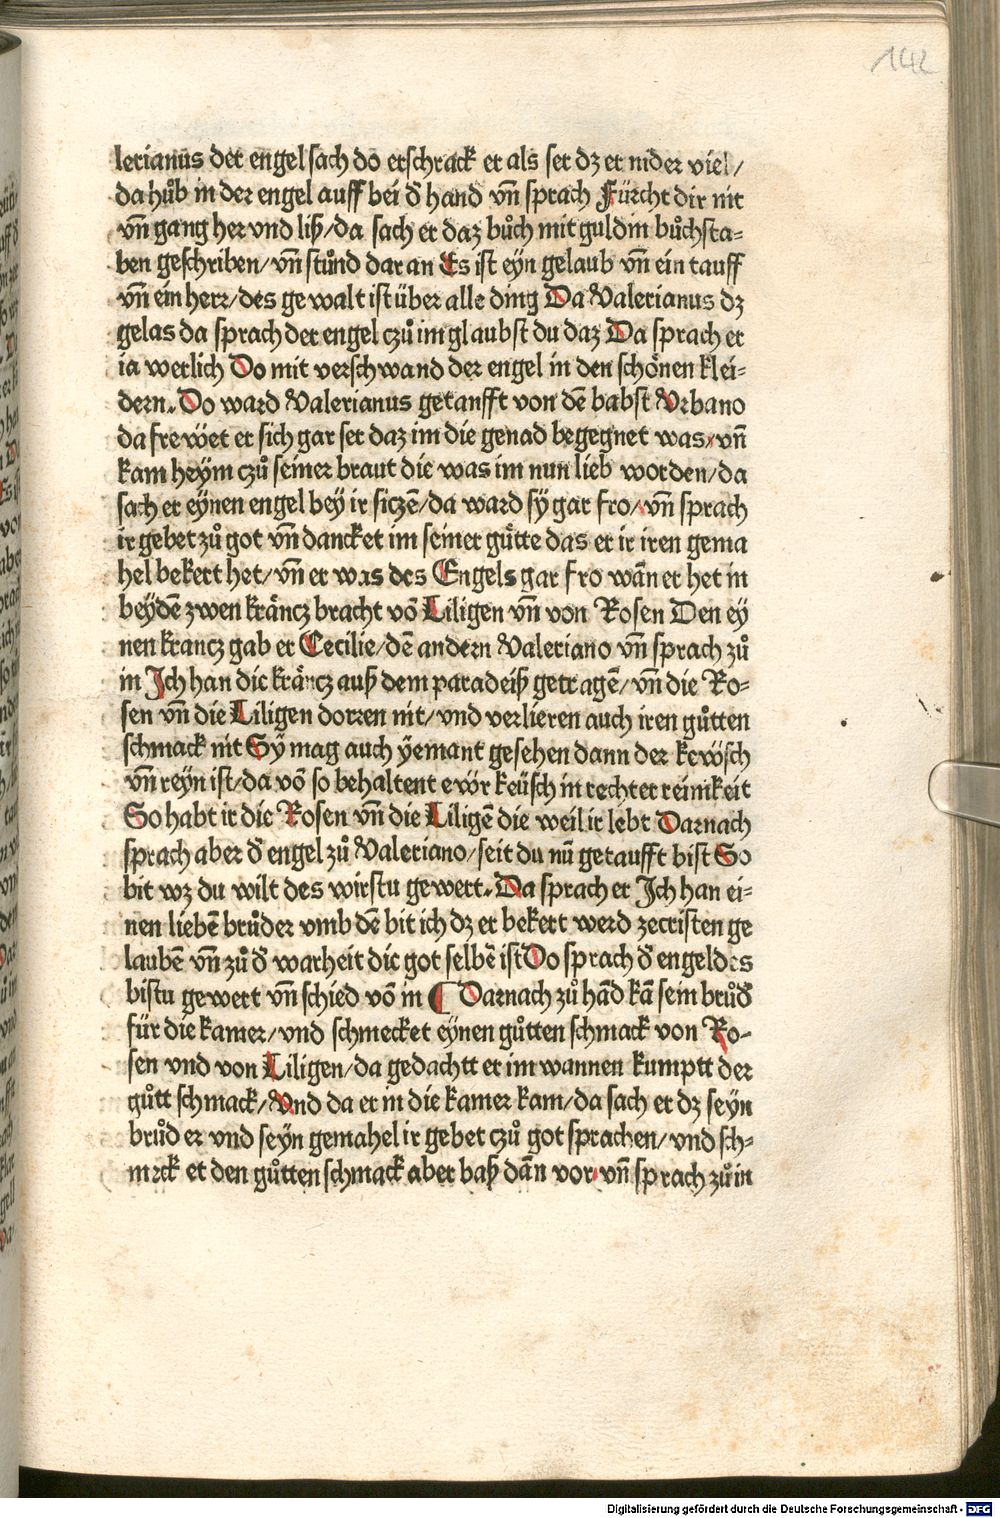 142
lerianus der engel sach do erschrack er als ser dz er nider viel/
da hůb in der engel auff bei d̕ hand vn̄ sprach Fürcht dir nit
vn̄ gang her vnd liß/da sach er daz bůch mit guldin bůchsta⸗
ben geschriben/vn̄ stůnd dar an Es ist eyn gelaub vn̄ ein tauff
vn̄ ein herr/des gewalt ist über alle ding Da Valerianus dz
gelas da sprach der engel czů im glaubst du daz Da sprach er
ia werlich Do mit verschwand der engel in den schönen klei⸗
dern. Do ward Valerianus getaufft von dē babst Vrbano
da frewet er sich gar ser daz im die genad begegnet was/vn̄
kam heym czů seiner braut die was im nun lieb worden/da
sach er eynen engel bey ir siczē/da ward sy gar fro/vn̄ sprach
ir gebet zů got vn̄ dancket im seiner gůtte das er ir iren gema
hel bekert het/vn̄ er was des Engels gar fro wān er het in
beydē zwen kräncz bracht vō Liligen vn̄ von Rosen Den ey
nen krancz gab er Cecilie/dē andern Valeriano vn̄ sprach zů
in Ich han die kräncz auß dem paradeiß getragē/vn̄ die Ro⸗
sen vn̄ die Liligen dorren nit/vnd verlieren auch iren gůtten
schmack nit Sy mag auch yemant gesehen dann der kewsch
vn̄ reyn ist/da vō so behaltent ewr keüsch in rechter reinikeit
So habt ir die Rosen vn̄ die Liligē die weil ir lebt Darnach
sprach aber d̕ engel zů Valeriano/seit du nū getaufft bist So
bit wz du wilt des wirstu gewert. Da sprach er Ich han ei⸗
nen liebē brůder vmb dē bit ich dz er bekert werd ze cristen ge
laubē vn̄ zů d̕ warheit die got selbē ist Do sprach d̕ engel des
bistu gewert vn̄ schied vō in ¶ Darnach zů hād kā sein brůd̕
für die kamer/vnd schmecket eynen gůtten schmack von Ro⸗
sen vnd von Liligen/da gedachtt er im wannen kumptt der
gůtt schmack/Vnd da er in die kamer kam/da sach er dz seyn
brůd er vnd seyn gemahel ir gebet czů got sprachen/vnd sch⸗
meck et den gůtten schmack aber baß dān vor/vn̄ sprach zů in
Digitalisierung gefördert durch die Deutsche Forschungsgemeinschaft - DFG